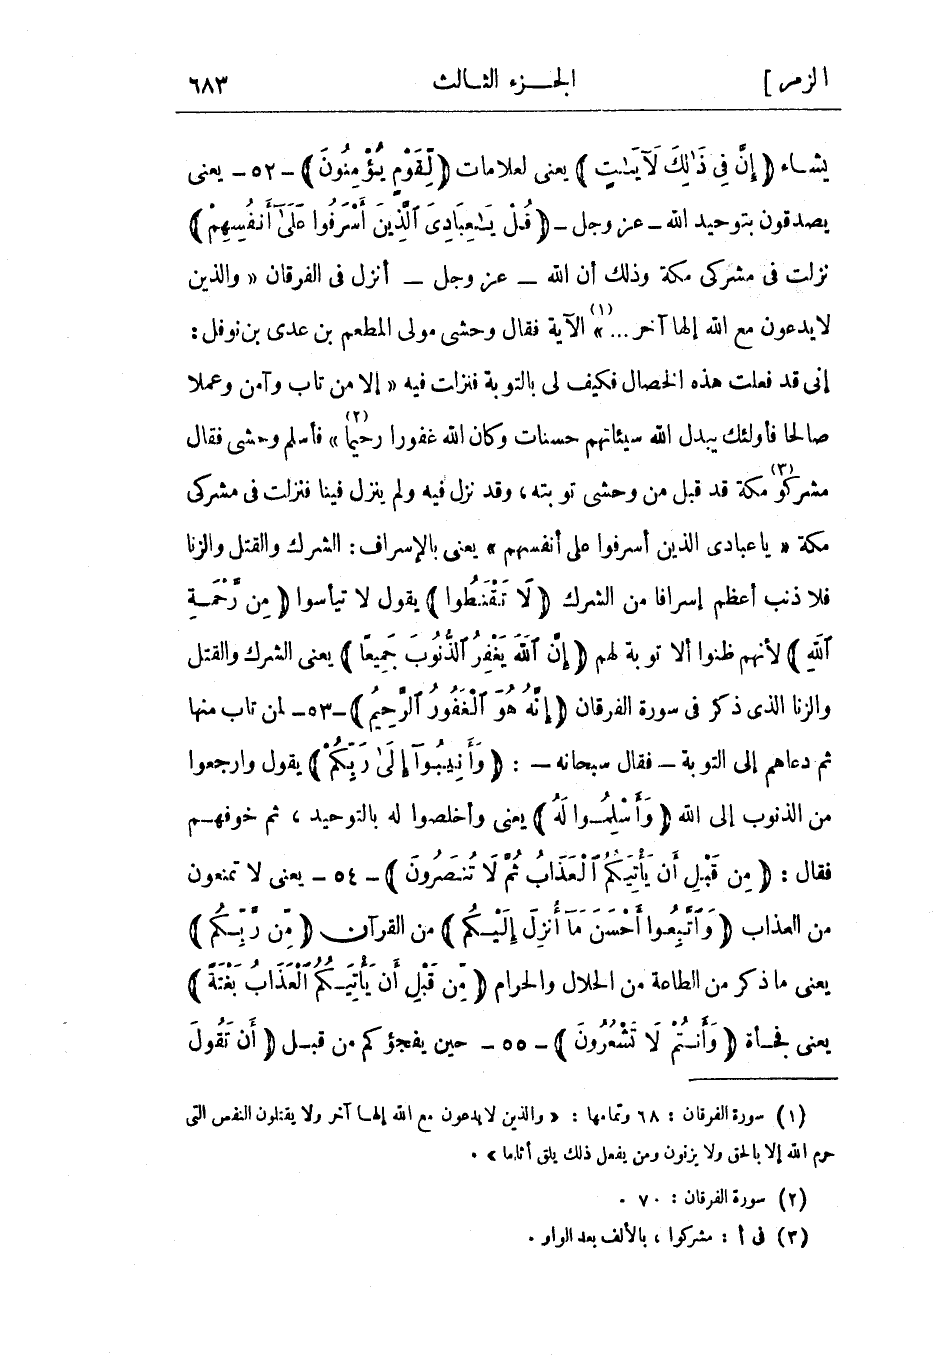 الزمر ] الجـزء الثـالث ٦٨٣
يشـاء ﴿ إِنَّ فِى ذَٰلِكَ لَآيَـٰتٍ ﴾ يعنى لعلامات ﴿ لِّقَوْمٍ يُؤْمِنُونَ ﴾ ـ ٥٢ ـ يعنى
يصدقون بتوحيد الله ـ عز وجل ـ ﴿ قُلْ يَـٰعِبَادِىَ ٱلَّذِينَ أَسْرَفُوا عَلَىٰٓ أَنفُسِهِمْ ﴾
نزلت فى مشركى مكة وذلك أن الله ـ عز وجل ـ أنزل فى الفرقان « والذين
لا يدعون مع الله إلها آخر ... » (١) الآية فقال وحشى مولى المطعم بن عدى بن نوفل :
إنى قد فعلت هذه الخصال فكيف لى بالتوبة فنزلت فيه « إلا من تاب وآمن وعملا
صالحا فأولئك يبدل الله سيئاتهم حسنات وكان الله غفورا رحيما » (٢) فأسلم وحشى فقال
مشركو (٣) مكة قد قبل من وحشى توبته ، وقد نزل فيه ولم ينزل فينا فنزلت فى مشركى
مكة « يا عبادى الذين أسرفوا على أنفسهم » يعنى بالإسراف : الشرك والقتل والزنا
فلا ذنب أعظم إسرافا من الشرك ﴿ لَا تَقْنَطُوا ﴾ يقول لا تيأسوا ﴿ مِن رَّحْمَـةِ
ٱللَّهِ ﴾ لأنهم ظنوا ألا توبة لهم ﴿ إِنَّ ٱللَّهَ يَغْفِرُ ٱلذُّنُوبَ جَمِيعًا ﴾ يعنى الشرك والقتل
والزنا الذى ذكر فى سورة الفرقان ﴿ إِنَّهُ هُوَ ٱلْغَفُورُ ٱلرَّحِيمُ ﴾ ـ ٥٣ ـ لمن تاب منها
ثم دعاهم إلى التوبة ـ فقال سبحانه ـ : ﴿ وَأَنِيبُوٓا إِلَىٰ رَبِّكُمْ ﴾ يقول وارجعوا
من الذنوب إلى الله ﴿ وَأَسْلِمُـوا لَهُ ﴾ يعنى وأخلصوا له بالتوحيد ، ثم خوفهـم
فقال : ﴿ مِن قَبْلِ أَن يَأْتِيَكُمُ ٱلْعَذَابُ ثُمَّ لَا تُنصَرُونَ ﴾ ـ ٥٤ ـ يعنى لا تمنعون
من العذاب ﴿ وَٱتَّبِعُوا أَحْسَنَ مَآ أُنزِلَ إِلَيْـكُم ﴾ من القرآن ﴿ مِّن رَّبِّـكُم ﴾
يعنى ما ذكر من الطاعة من الحلال والحرام ﴿ مِّن قَبْلِ أَن يَأْتِيَـكُمُ ٱلْعَذَابُ بَغْتَةً ﴾
يعنى فجـأة ﴿ وَأَنـتُمْ لَا تَشْعُرُونَ ﴾ ـ ٥٥ ـ حين يفجؤكم من قبـل ﴿ أَن تَقُولَ
(١) سورة الفرقان : ٦٨ وتمامها : « والذين لا يدعون مع الله إلهـا آخر ولا يقتلون النفس التى
حرم الله إلا بالحق ولا يزنون ومن يفعل ذلك يلق أثاما » .
(٢) سورة الفرقان : ٧٠ .
(٣) فى أ : مشركوا ، بالألف بعد الواو .